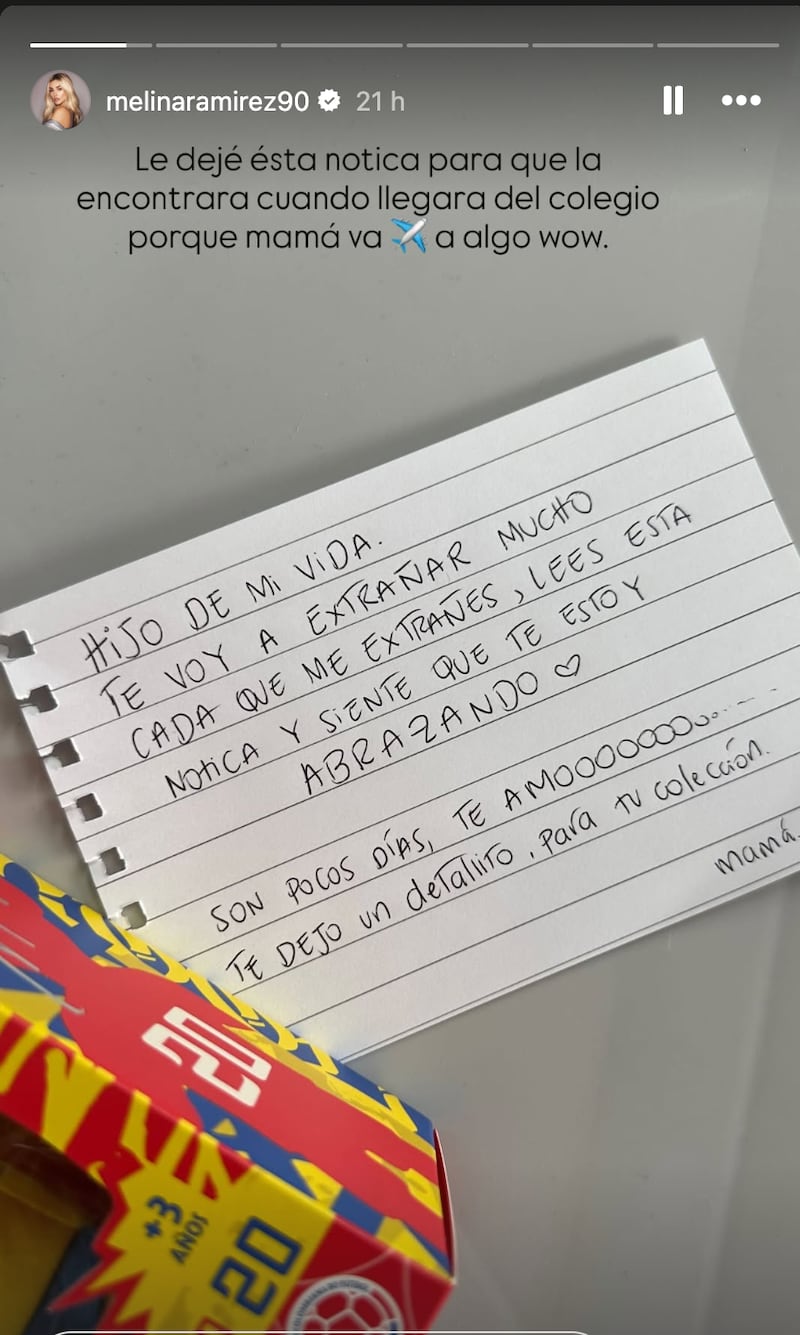 melinaramirez90 21 h
Le dejé ésta notica para que la
encontrara cuando llegara del colegio
porque mamá va ✈️ a algo wow.
HIJO DE Mi ViDA.
TE VOY A EXTRAÑAR MUCHO
CADA QUE ME EXTRAÑES, LEES ESTA
NOtiCA Y SiENTE QUE TE ESTOY
ABRAZANDO ♡
SON POCOS DÍAS, TE AMOOOOOOOoo.....
TE DEJO un deTaliiTO, para TU colección.
mamá.
20
+3
AÑOS
20